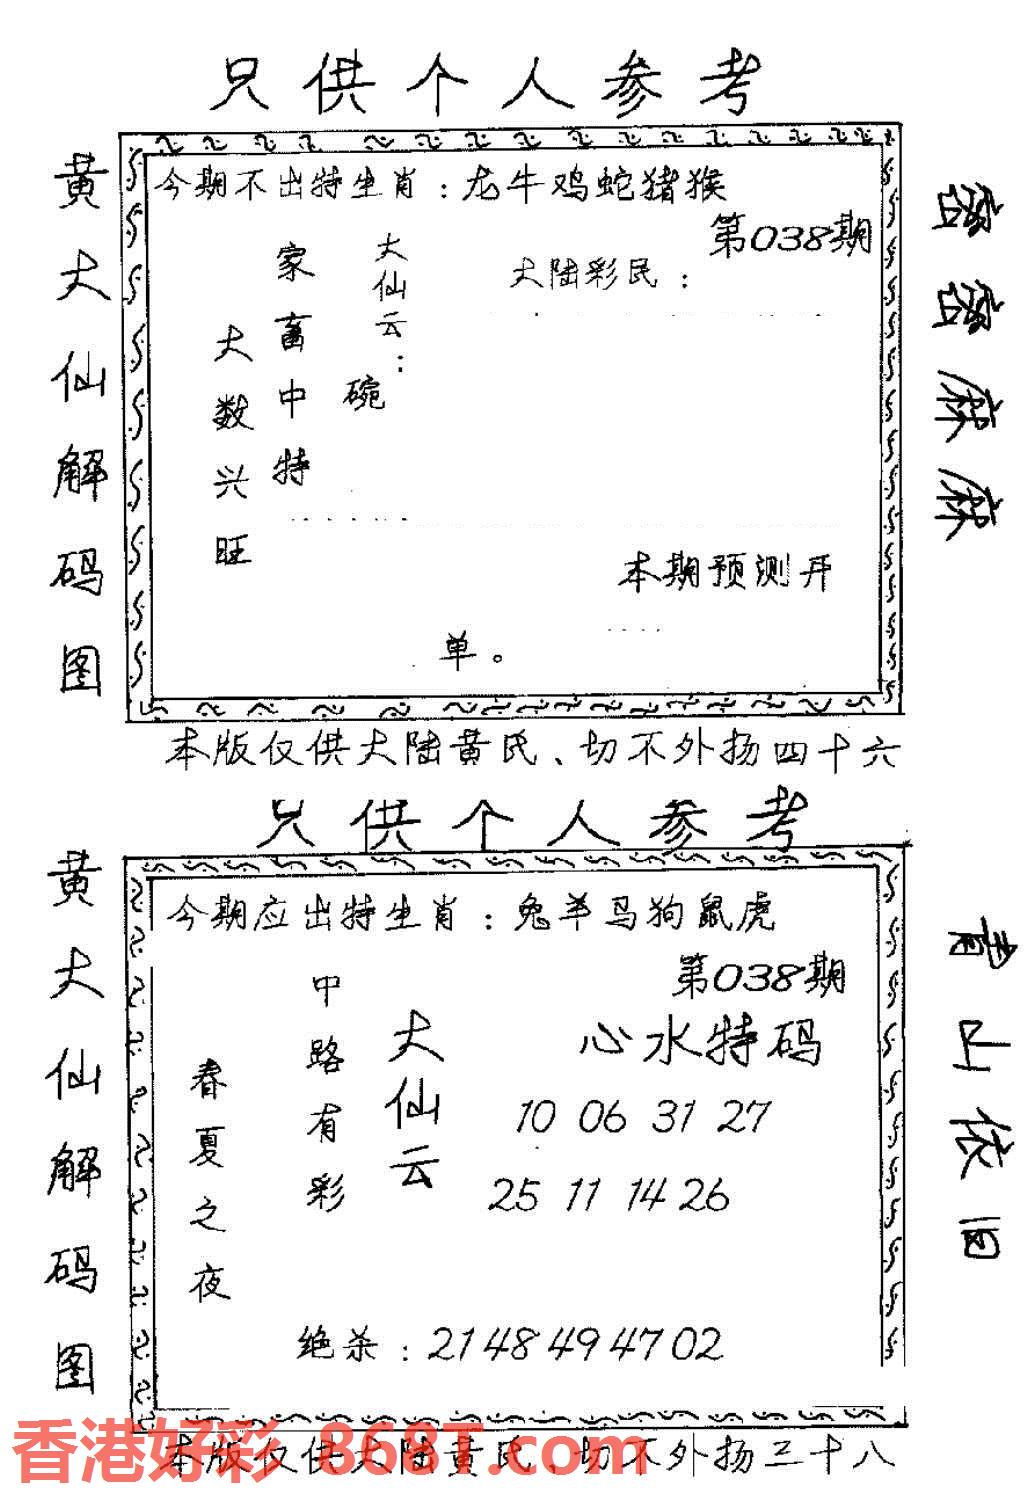 只供个人参考
黄大仙解码图
今期不出特生肖：龙牛鸡蛇猪猴
第038期
大陆彩民：
大仙云：
碗
家畜中特
大数兴旺
本期预测开
单。
密密麻麻
本版仅供大陆黄氏、切不外扬四十六
只供个人参考
黄大仙解码图
今期应出特生肖：兔羊马狗鼠虎
第038期
心水特码
10 06 31 27
25 11 14 26
大仙云
中路有彩
春夏之夜
绝杀：2148494702
青山依旧
本版仅供大陆黄氏、切不外扬三十八
香港好彩 868T.com